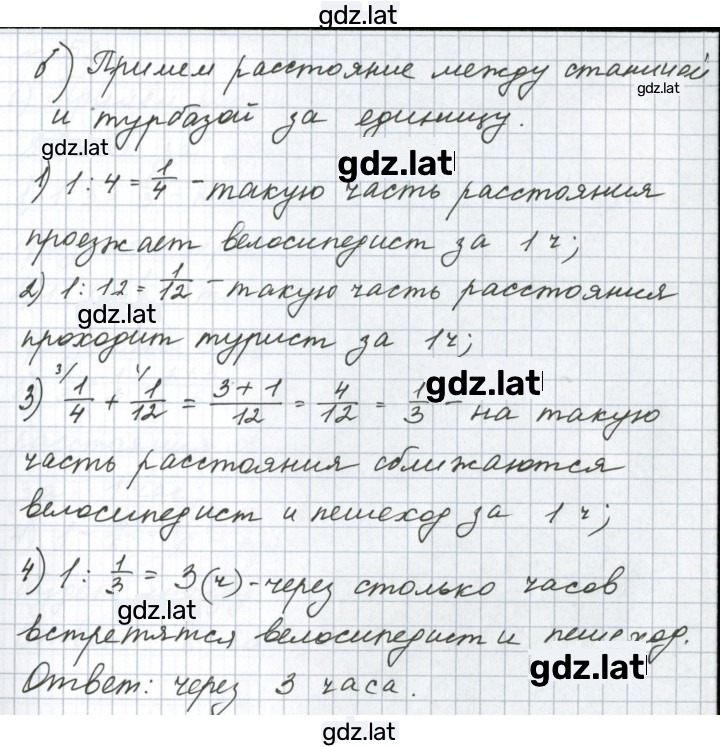 gdz.lat
б) Примем расстояние между станицей
gdz.lat
и турбазой за единицу.
gdz.lat
gdz.lat
1) 1 : 4 = 1/4 - такую часть расстояния
проезжает велосипедист за 1 ч;
2) 1 : 12 = 1/12 - такую часть расстояния
gdz.lat
проходит турист за 1ч;
3) 3/ 1/4 + 1/ 1/12 = 3+1/12 = 4/12 = 1/3 - на такую
gdz.lat
часть расстояния сближаются
велосипедист и пешеход за 1 ч;
4) 1 : 1/3 = 3 (ч) - через столько часов
gdz.lat
встретятся велосипедист и пешеход.
gdz.lat
Ответ: через 3 часа.
gdz.lat